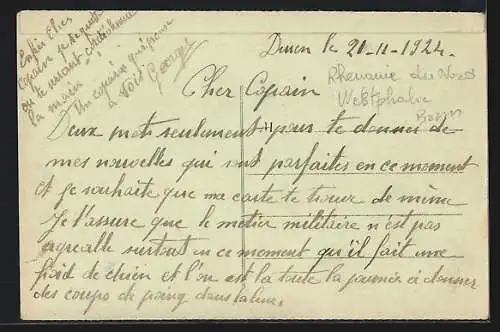 Duren le 21-11-1924.
Cher Copain
Rhenanie du Nord
Westphalie
Deux mots seulement pour te donner de
mes nouvelles qui sont parfaites en ce moment
et je souhaite que ma carte te trouve de même
Je t'assure que le métier militaire n'est pas
agreable surtout en ce moment qu'il fait une
froid de chien et l'on est la toute la journée a donner
des coups de poing dans
Enfin Cher
Copain je te quitte
en te serrant cordialement
la main
Un copain qui pense
à toi
Georges